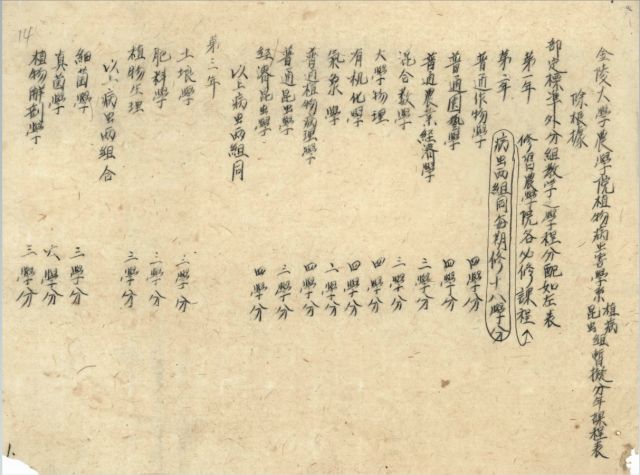 金陵大學農學院植物病虫害學系植病昆虫組暫擬分年課程表
除根據
部定標準外分組教学之學程分配如左表
第一年 修習農學院各必修課程
第二年 病虫两組同每期修十八學分
普通作物學 四學分
普通園藝學 四學分
普通農業經濟學 三學分
混合数學 三學分
大學物理 四學分
有机化學 四學分
氣象學 二學分
普通植物病理學 四學分
普通昆虫學 三學分
經濟昆虫學 四學分
以上病虫两組同
第三年
土壤學 三學分
肥料學 三學分
植物生理 三學分
以上病虫两組合
細菌學 三學分
真菌學 六學分
植物解剖學 三學分
14
1.